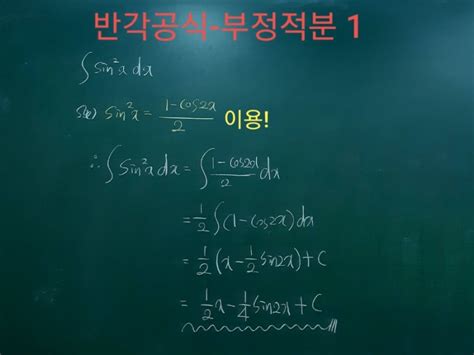 반각공식-부정적분 1
∫sin²x dx
Sol) sin²x = (1-cos2x)/2 이용!
∴ ∫sin²x dx = ∫(1-cos2x)/2 dx
= 1/2 ∫(1-cos2x)dx
= 1/2 (x - 1/2 sin2x) + C
= 1/2 x - 1/4 sin2x + C